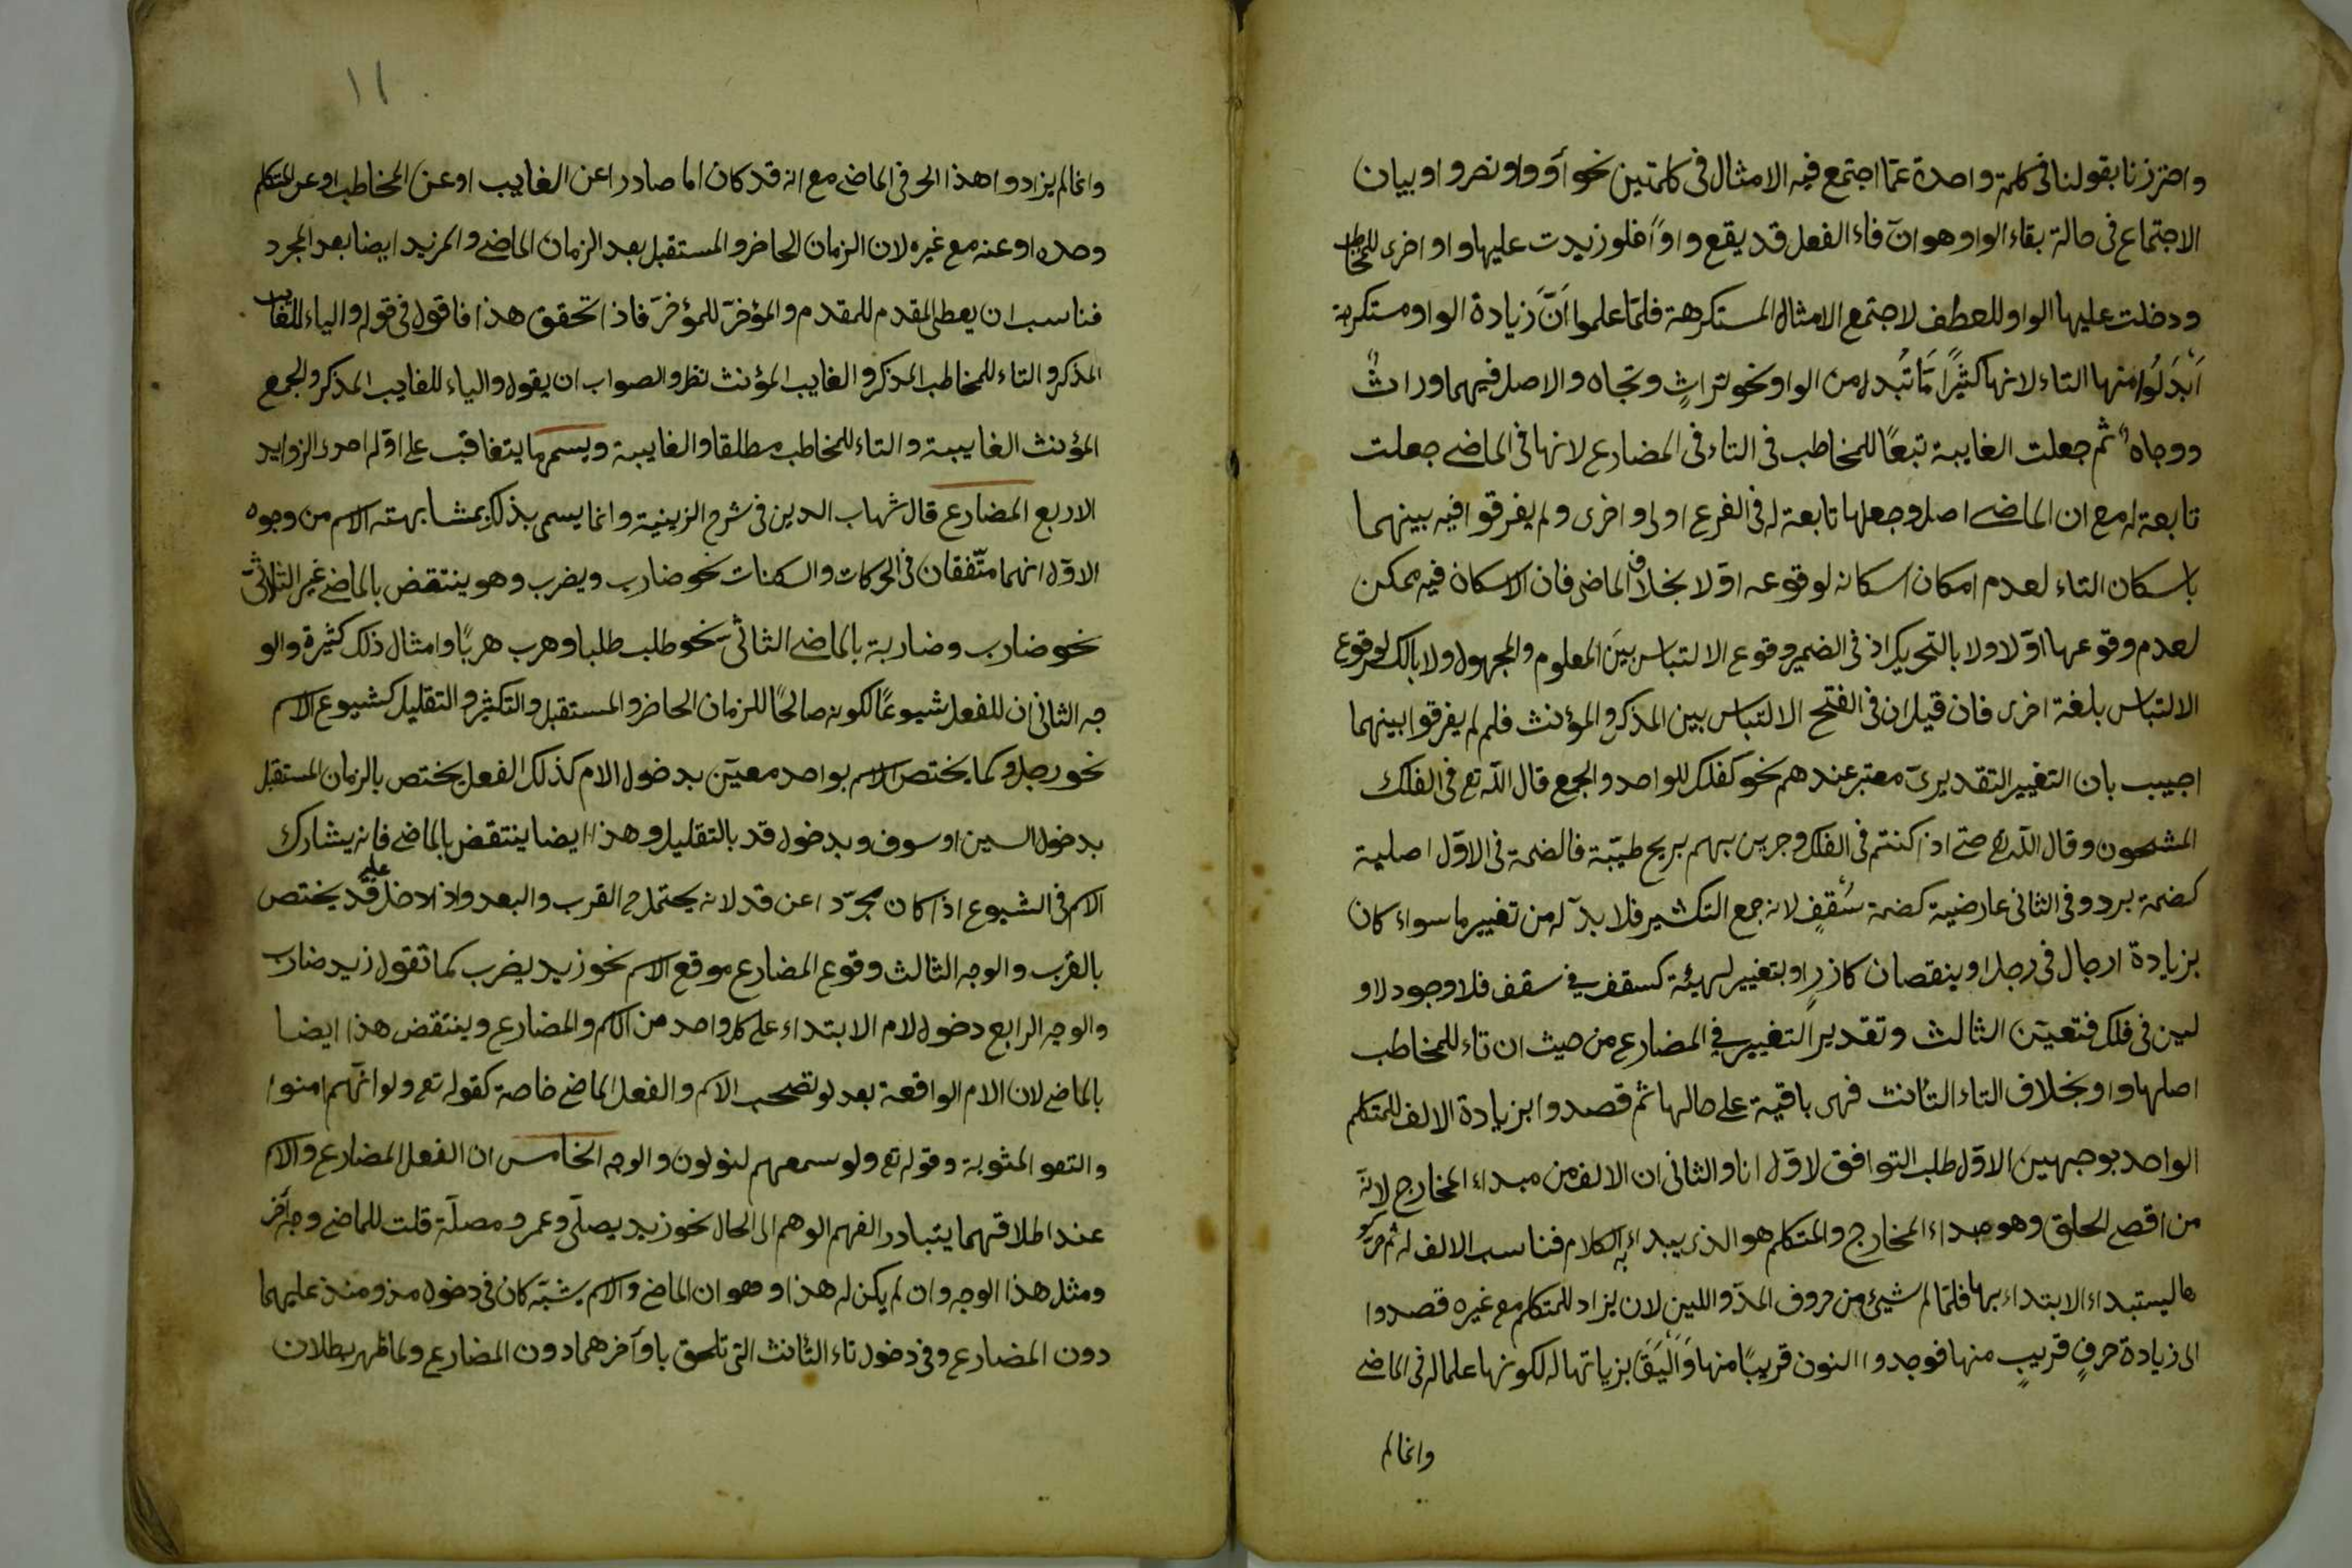 واحترزنا بقولنا فى كلمة واحدة عما اجتمع فيه الامثال فى كلمتين نحو آوَ وا ونصروا وبيان
الاجتماع فى حالة بقاء الواو هو انّ فاء الفعل قد يقع واوًا فلو زيدت عليها واو اخرى للمخاطب
ودخلت عليها الواو للعطف لاجتمع الامثال المستكرهة فلمّا علموا اَنَّ زيادة الواو مستكرهة
اَبْدَلُوا منها التاء لانها كثيْرًا مَا تُبدل من الواو نحو تراثٍ وتجاه والاصل فيهما وراثٌ
ووجاهٌ ثم جعلت الغايبة تبعًا للمخاطب فى التاء فى المضارع لانها فى الماضى جعلت
تابعة له مع ان الماضى اصل وجعلها تابعة له فى الفرع اولى واخرى ولم يفرقوا فيه بينهما
باسكان التاء لعدم امكان اسكانه لوقوعه اوّلا بخلاف الماضى فان الاسكان فيه ممكن
لعدم وقوعها اوّلا ولا بالتحريك اذ فى الضم وقوع الالتباس بين المعلوم والمجهول ولا بالكسر لوقوع
الالتباس بلغة اخرى فان قيل ان فى الفتح الالتباس بين المذكر والمؤنث فلم لم يفرقوا بينهما
اجيب بان التغيير التقديرىّ معتبر عندهم نحو كفلك للواحد والجمع قال الله تع فى الفلك
المشحون وقال الله تع حتى اذا كنتم فى الفلك وجرين بهم بريح طيّبة فالضمة فى الاوّل اصلية
كضمة برد وفى الثانى عارضية كضمة سُقفٍ لانه جمع التكثير فلا بدّ له من تغيير ما سواء كان
بزيادة ارجال فى رجل او بنقصان كازر او بتغيير لهيئة كسقف فى سقف فلا وجود لاو
لين فى فلك فتعيّن الثالث وتقدير التغيير فى المضارع من حيث ان تاء للمخاطب
اصلها واو بخلاف التاء التأنث فهى باقية على حالها ثم قصدوا بزيادة الالف للمتكلم
الواحد بوجهين الاوّل طلب التوافق لاوّل انا والثانى ان الالف من مبداء المخارج لانّه
من اقصى الحلق وهو مبداء المخارج والمتكلم هو الذى يبداء به الكلام فناسب الالف له ثم حرّكو
ها ليستبداء الابتداء بها فلمّا لم شيئ من حروف المدّ واللين لان يزاد للمتكلم مع غيره قصدوا
الى زيادة حرفٍ قريبٍ منها فوجدوا النون قريبًا منها وَاَلْيَقَ بزياتها له لكونها علما له فى الماضى
وانما لم
١١
وانما لم يزادوا هذا الحرف فى الماضى مع انه قد كان اما صادرا عن الغايب او عن المخاطب او عن المتكلم
وحده او عنه مع غيره لان الزمان الحاضر والمستقبل بعد الزمان الماضى والمزيد ايضا بعد المجرد
فناسب ان يعطى المقدم للمقدم والمؤخرّ للمؤخرّ فاذا تحقق هذا فاقول فى قوله والياء للغايب
المذكر والتاء للمخاطب المذكر والغايب المؤنث نظر والصواب ان يقول والياء للغايب المذكر والجمع
المؤنث الغايبة والتاء للمخاطب مطلقا والغايبة ويسمى ما يتعاقب على اوّله احدى الزوايد
الاربع المضارع قال شهاب الدين فى شرح الزينية وانما يسمى بذلك بمشابهته الاسم من وجوه
الاوّل انهما متّفقان فى الحركات والسكنات نحو ضارب ويضرب وهو ينتقض بالماضى غير الثلاثىّ
نحو ضارب وضاربة بالماضى الثاثى نحو طلب طلبا وهرب هربًا وامثال ذلك كثيرة والو
جه الثانى ان للفعل شيوعًا لكونه صالحًا للزمان الحاضر والمستقبل والتكثير والتقليل كشيوع الاسم
نحو رجل وكما يختص الاسم بواحد معيّن بدخول الام كذلك الفعل يختص بالزمان المستقبل
بدخول السين او سوف وبدخول قد بالتقليل وهذا ايضا ينتقض بالماضى فانه يشارك
الاسم فى الشيوع اذا كان مجرّدا عن قد لانه يحتمل القرب والبعد واذا دخل عليه قد يختص
بالقرب والوجه الثالث وقوع المضارع موقع الاسم نحو زيد يضرب كما تقول زيد ضارب
والوجه الرابع دخول لام الابتداء على كل واحد من الاسم والمضارع وينتقض هذا ايضا
بالماضى لان الام الواقعة بعد لو تصحب الاسم والفعل الماضى خاصة كقوله تع ولو انّهم امنوا
والتقو المثوبة وقوله تع ولو سمعهم لنولون والوجه الخامس ان الفعل المضارع والاسم
عند اطلاقهما يتبادر الفهم الوهم الى الحال نحو زيد يصلّى وعمرو مصلّة قلت للماضى وجه آخر
ومثل هذا الوجه وان لم يكن له هذا وهو ان الماضى والاسم يشبّه كان فى دخول مذ ومنذ عليهما
دون المضارع وفى دخول تاء التأنث التى تلحق باوآخرهما دون المضارع ولما ظهر بطلان